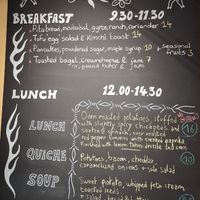 BREAKFAST 9.30-11.30
Pitabread, muttabal, gyros, ranch, coriander 14
Tofu egg salad & Kimchi toast 14
Pancakes, powdered sugar, maple syrup 10 + seasonal fruits 3
Toasted bagel, cream cheese & jam 7
butter & jam
LUNCH 12.00-14.30
LUNCH
Oven roasted potatoes, stuffed
with slightly spicy chickpeas and
spinach, with roasted
16
QUICHE
Potatoes, bacon, cheddar,
caramelized onions + side salad
10
SOUP
Sweet potato, whipped feta cream
toasted seeds
bread &